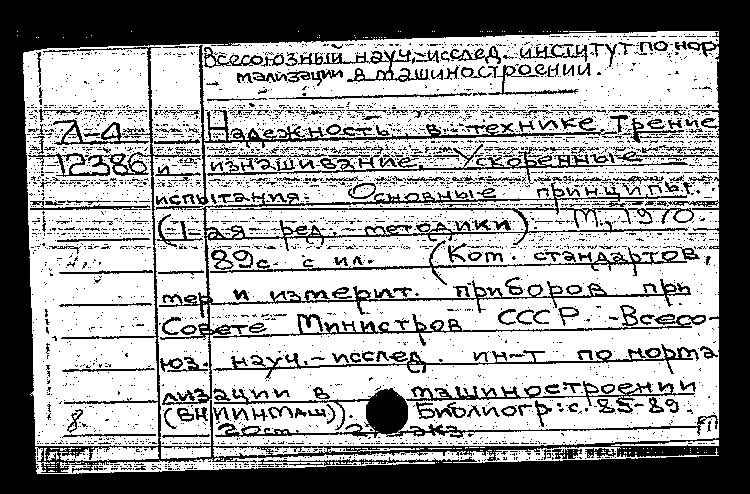 Всесоюзный науч.-исслед. институт по нор
мализации в машиностроении.
Л-Д Надежность в технике. Трение
12386 и изнашивание. Ускоренные
испытания. Основные принципы.
(1-ая ред. методики). М., 1970.
89с. с ил. (Ком. стандартов,
мер и измерит. приборов при
Совете Министров СССР. -Всесо-
юз. науч.-исслед. ин-т по норма
лизации в машиностроении
(ВНИИНМАШ)). Библиогр.: с. 85-89.
8. 20см. экз.